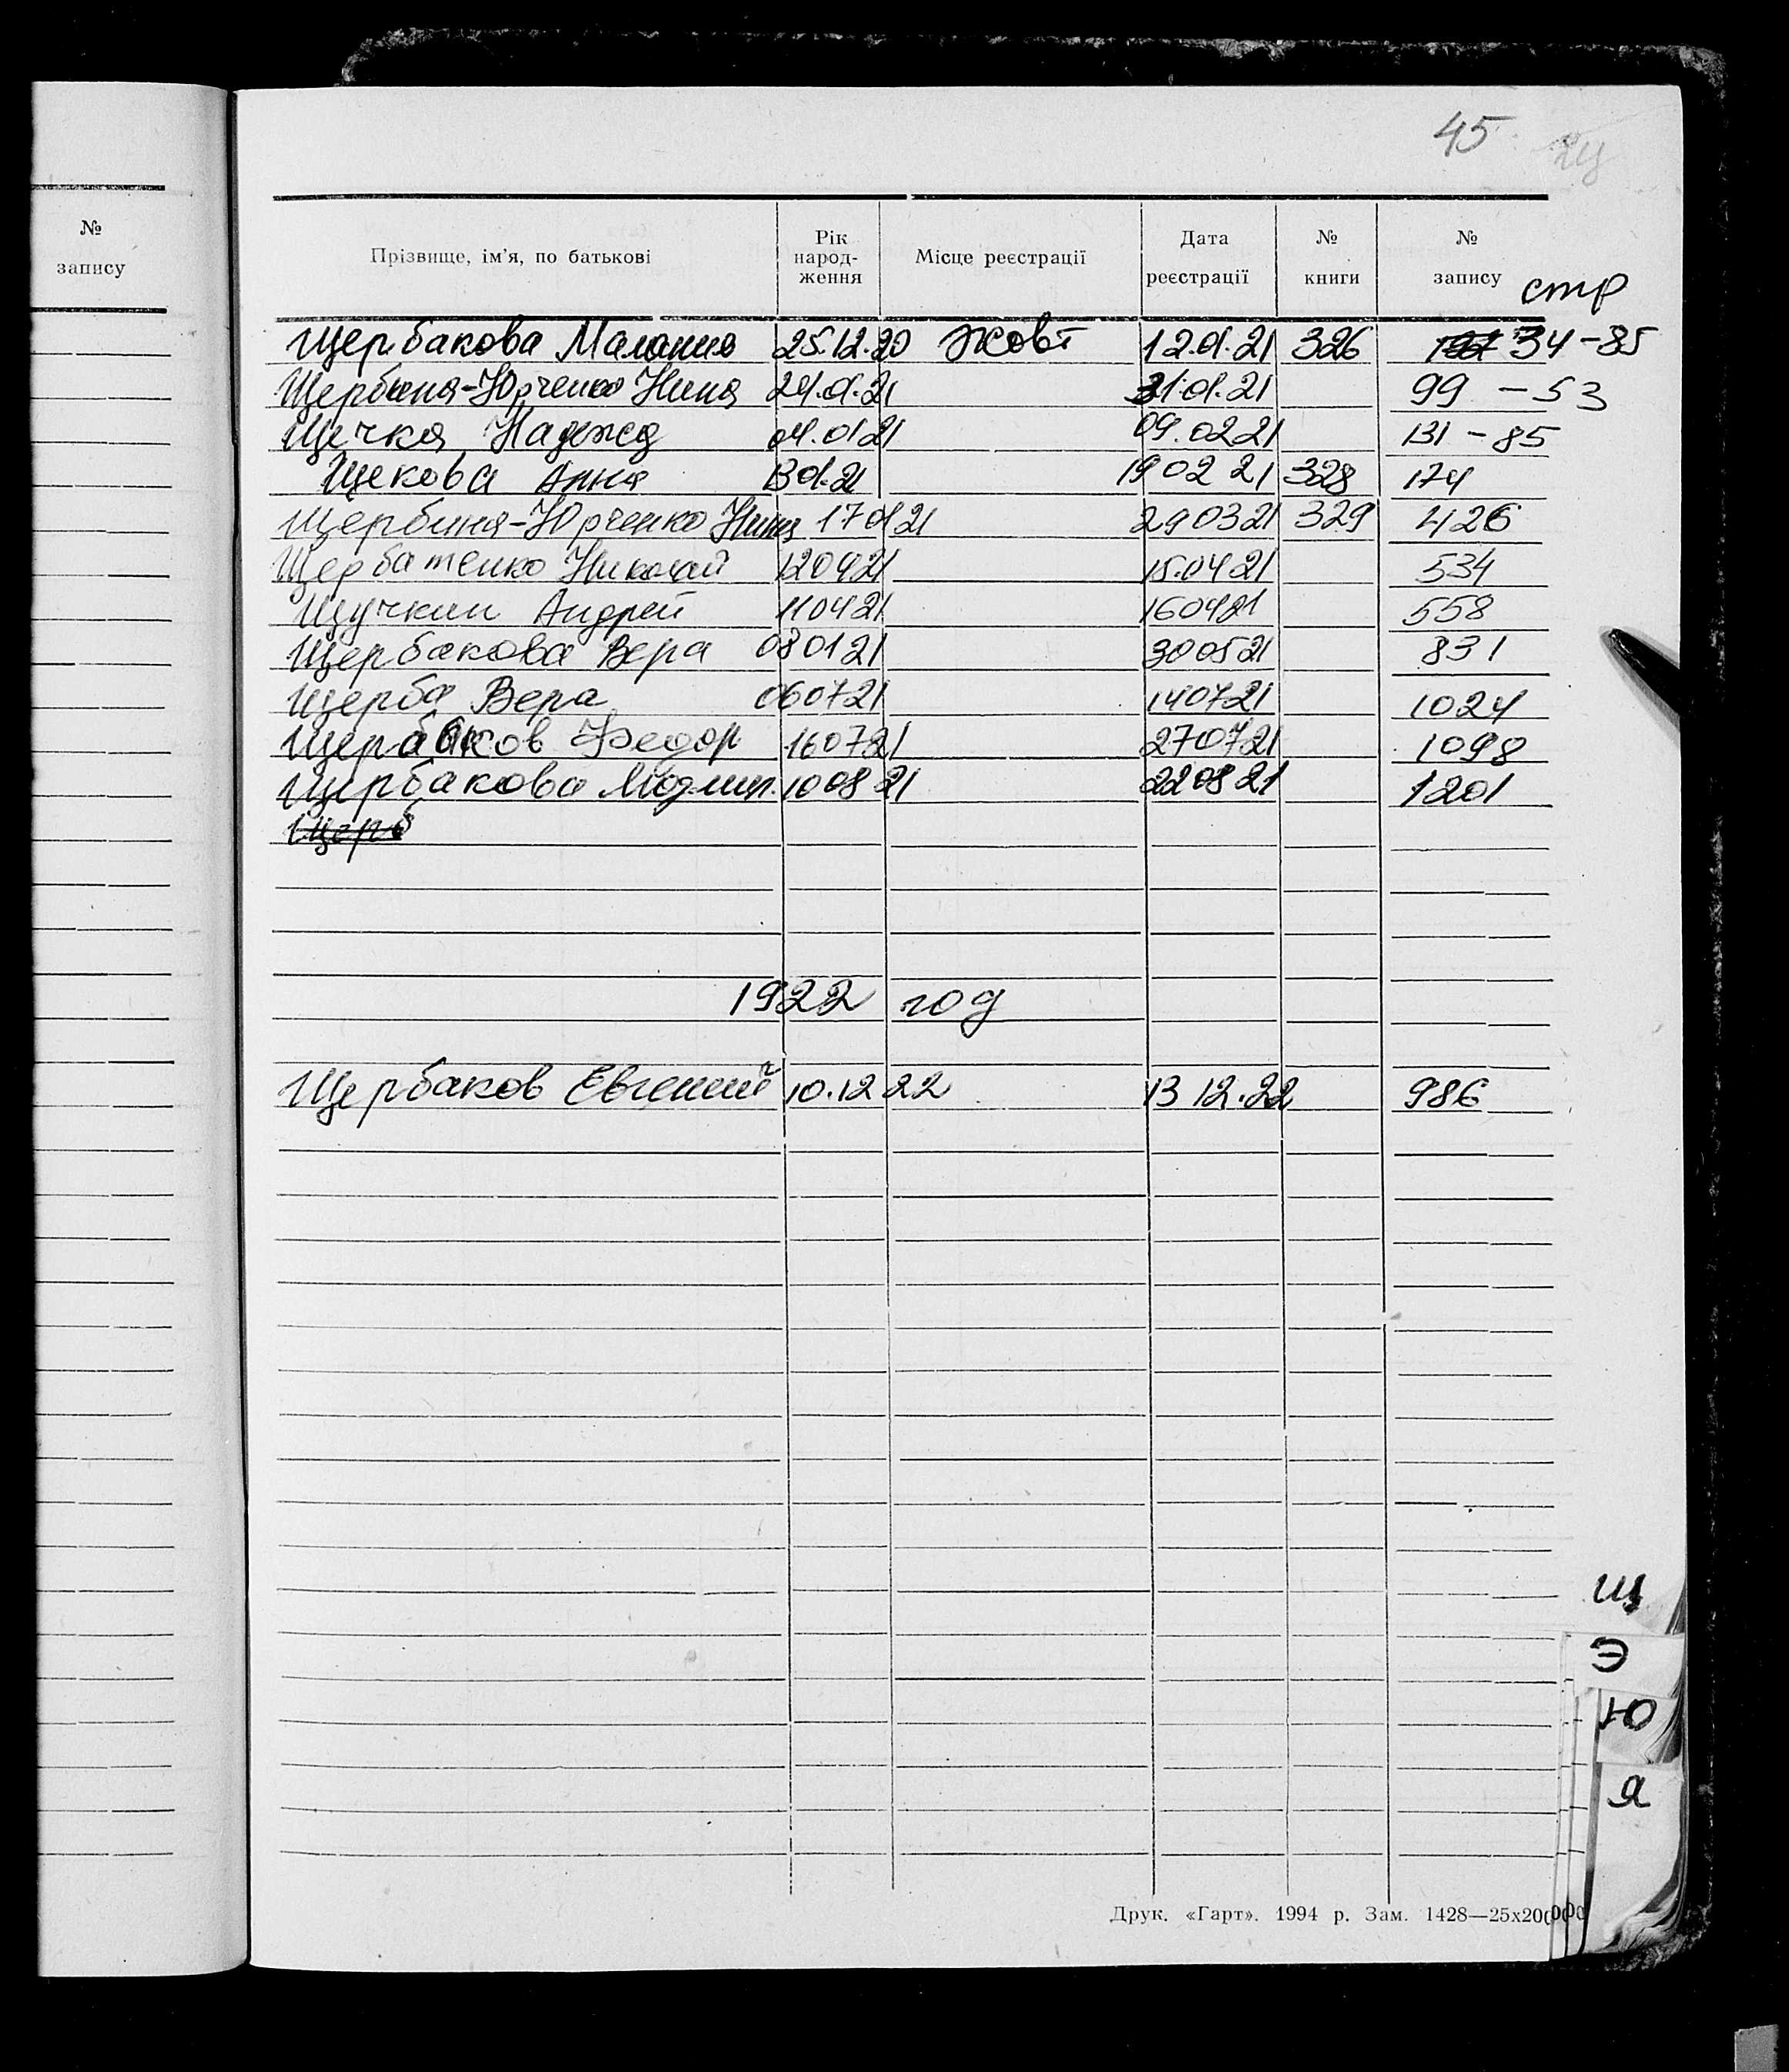 45
№
запису
Прізвище, ім'я, по батькові Рік народ-ження Місце реєстрації Дата реєстрації № книги № запису стр
Щербакова Малания 25.12.20 Жовт 12.01.21 326 34-85
Щербина-Юрченко Нина 24.01.21 31.01.21 99 - 53
Щечка Надежд 04.01 21 09.02 21 131 - 85
Щекова Анна 13 01.21 19 02 21 328 174
Щербина-Юрченко Нина 17 01 21 29 03 21 329 426
Щербатенко Николай 12 04 21 15.04 21 534
Щучкин Андрей 11 04 21 16 04 21 558
Щербакова Вера 08 01 21 30 05 21 831
Щерба Вера 06 07 21 14 07 21 1024
Щербаков Федор 16 07 21 27 07 21 1098
Щербакова Людмил. 10 08 21 22 08 21 1201
Щерб
1922 год
Щербаков Евгений 10.12 22 13 12.22 986
Щ
Э
Ю
Я
Друк. «Гарт». 1994 р. Зам. 1428—25х200